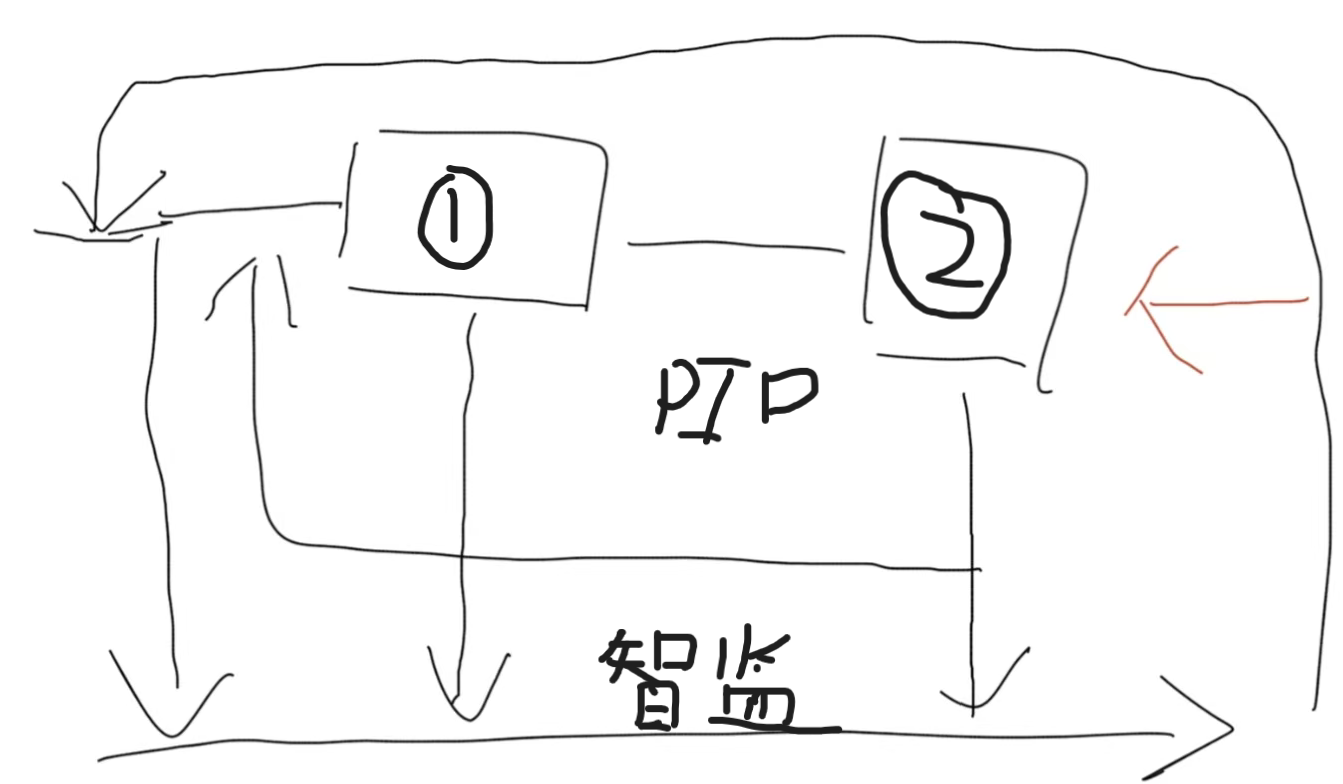 ①
②
PID
智监